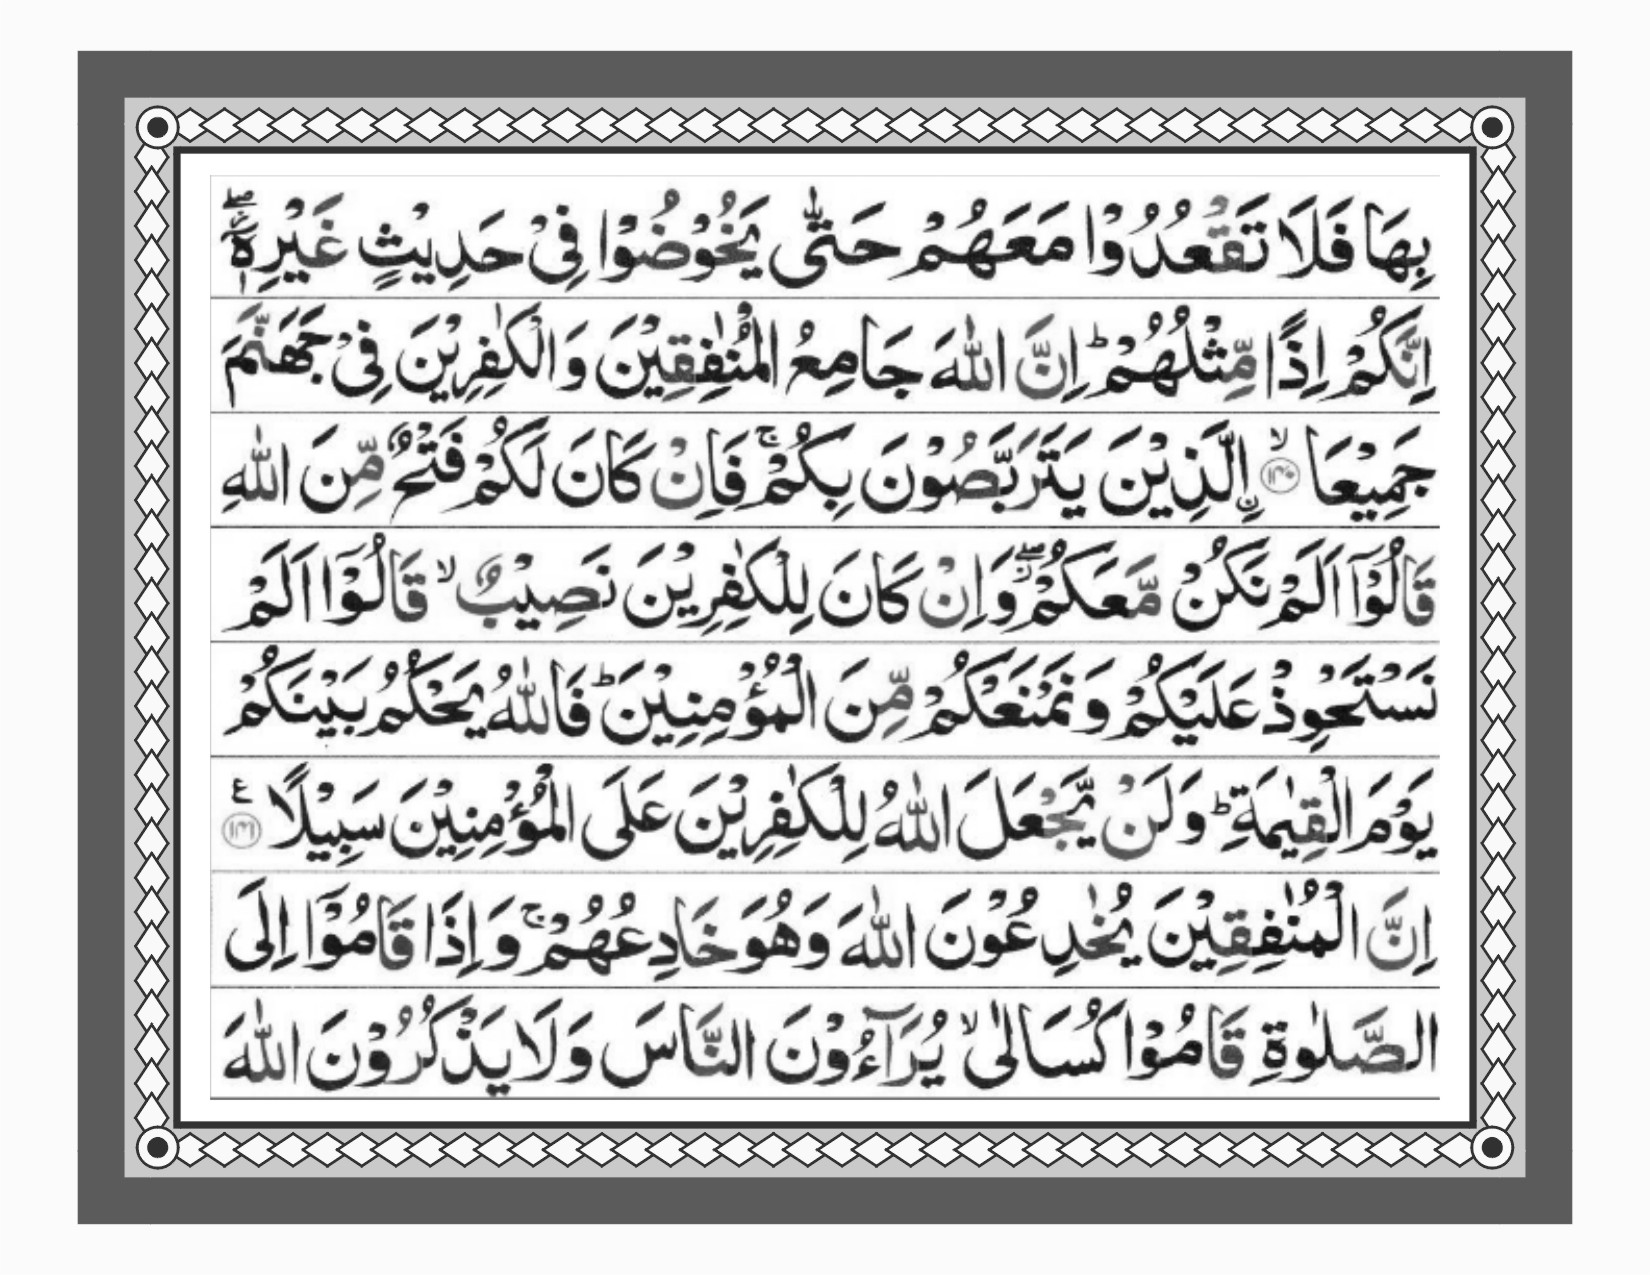 بِهَا فَلَا تَقْعُدُوْا مَعَهُمْ حَتّٰى يَخُوْضُوْا فِىْ حَدِيْثٍ غَيْرِهٖۤ ۖ
اِنَّكُمْ اِذًا مِّثْلُهُمْ ؕ اِنَّ اللّٰهَ جَامِعُ الْمُنٰفِقِيْنَ وَالْكٰفِرِيْنَ فِىْ جَهَنَّمَ
جَمِيْعَا ۙ ﴿۱۴۰﴾ اِۨلَّذِيْنَ يَتَرَبَّصُوْنَ بِكُمْ ۚ فَاِنْ كَانَ لَكُمْ فَتْحٌ مِّنَ اللّٰهِ
قَالُوْۤا اَلَمْ نَكُنْ مَّعَكُمْ ۖ وَاِنْ كَانَ لِلْكٰفِرِيْنَ نَصِيْبٌ ۙ قَالُوْۤا اَلَمْ
نَسْتَحْوِذْ عَلَيْكُمْ وَنَمْنَعْكُمْ مِّنَ الْمُؤْمِنِيْنَ ؕ فَاللّٰهُ يَحْكُمُ بَيْنَكُمْ
يَوْمَ الْقِيٰمَةِ ؕ وَلَنْ يَّجْعَلَ اللّٰهُ لِلْكٰفِرِيْنَ عَلَى الْمُؤْمِنِيْنَ سَبِيْلًا ﴿۱۴۱﴾ ع
اِنَّ الْمُنٰفِقِيْنَ يُخٰدِعُوْنَ اللّٰهَ وَهُوَ خَادِعُهُمْ ۚ وَاِذَا قَامُوْۤا اِلَى
الصَّلٰوةِ قَامُوْا كُسَالٰى ۙ يُرَآءُوْنَ النَّاسَ وَلَا يَذْكُرُوْنَ اللّٰهَ